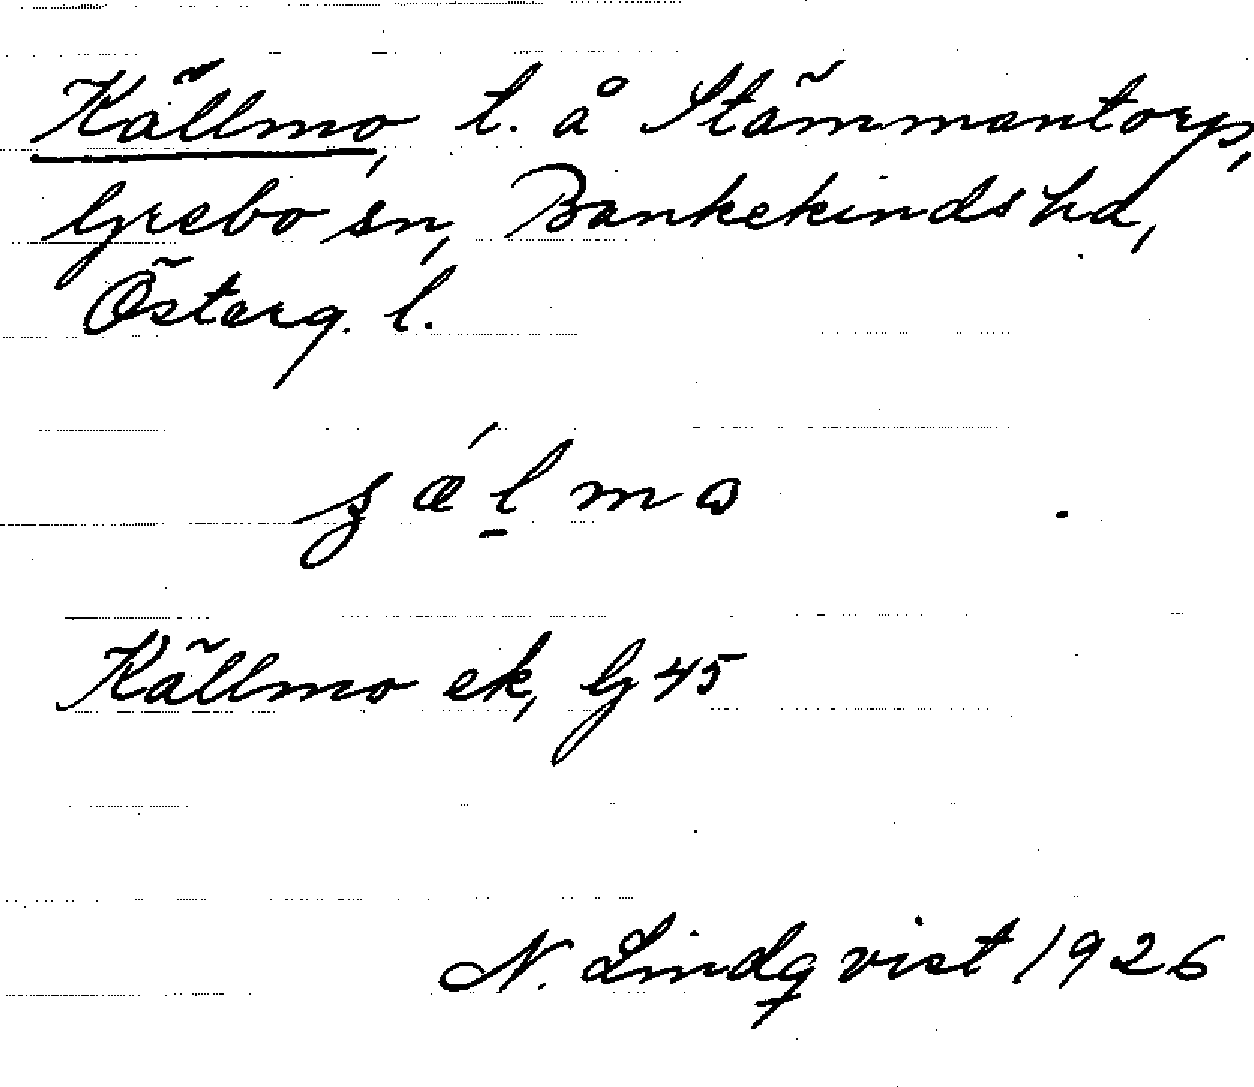 Källmo, t. å Stämmantorp,
Grebo sn, Bankekinds hd,
Österg. l.
Källmo ek, G 45
N. Lindqvist 1926